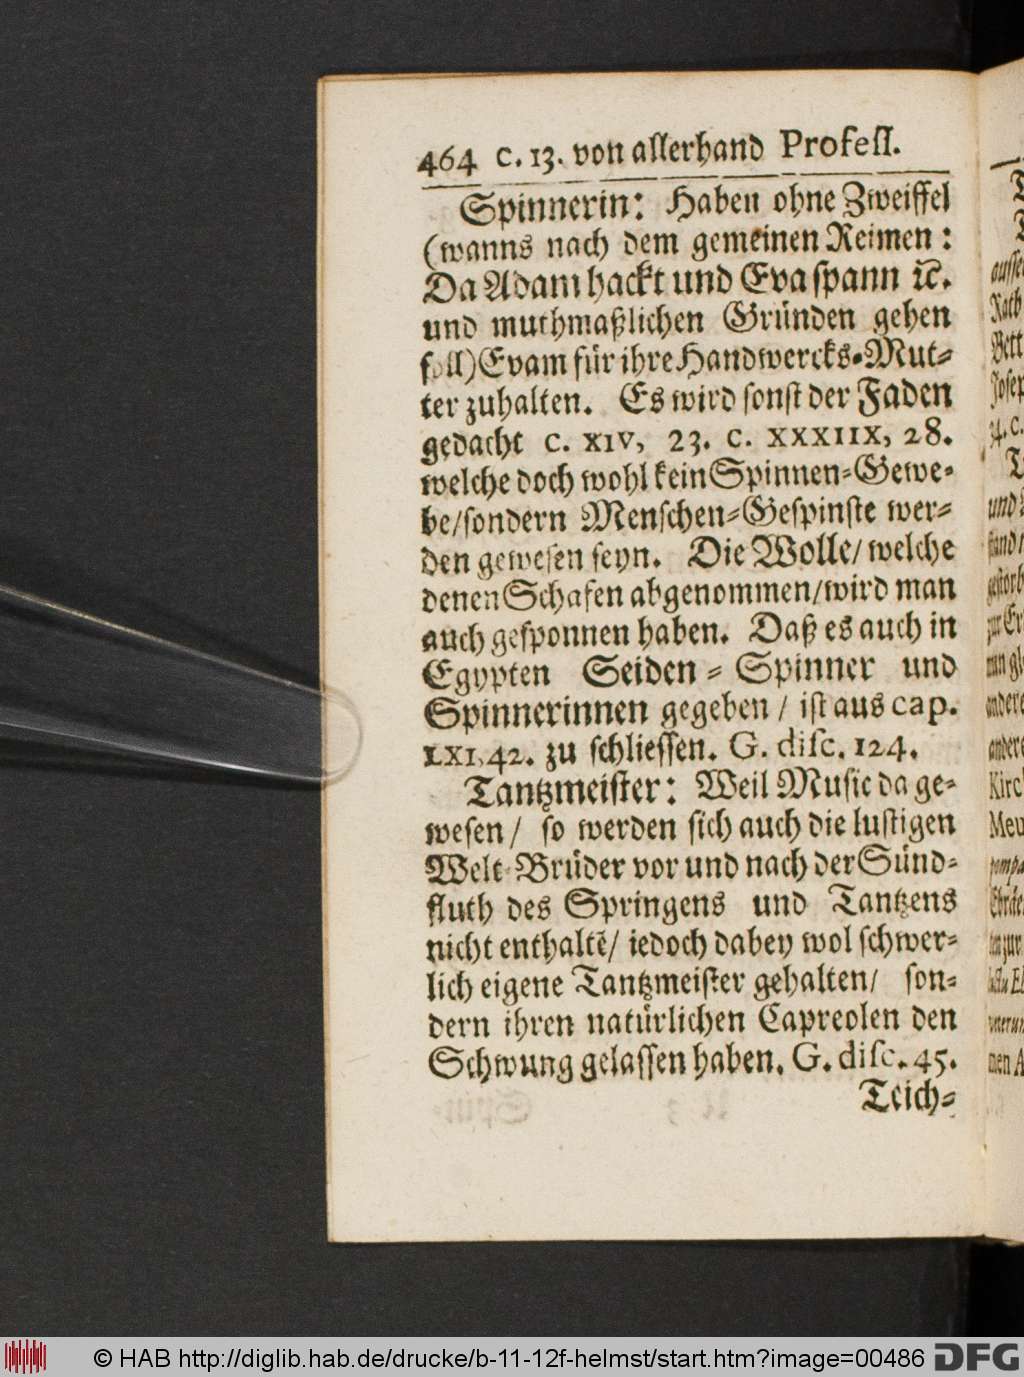 464 c. 13. von allerhand Profeſſ.
Spinnerin: Haben ohne Zweiffel
(wanns nach dem gemeinen Reimen:
Da Adam hackt und Eva ſpann ꝛc.
und muthmaßlichen Gründen gehen
ſoll) Evam für ihre Handwercks-Mut-
ter zuhalten. Es wird ſonſt der Faden
gedacht c. XIV, 23. c. XXXIIX, 28.
welche doch wohl kein Spinnen-Gewe-
be/ ſondern Menſchen-Geſpinſte wer-
den geweſen ſeyn. Die Wolle/ welche
denen Schafen abgenommen/ wird man
auch geſponnen haben. Daß es auch in
Egypten Seiden-Spinner und
Spinnerinnen gegeben/ iſt aus cap.
LXI, 42. zu ſchlieſſen. G. diſc. 124.
Tantzmeiſter: Weil Muſic da ge-
weſen/ ſo werden ſich auch die luſtigen
Welt-Brüder vor und nach der Sünd-
fluth des Springens und Tantzens
nicht enthaltē/ iedoch dabey wol ſchwer-
lich eigene Tantzmeiſter gehalten/ ſon-
dern ihren natürlichen Capreolen den
Schwung gelaſſen haben. G. diſc. 45.
Teich-
© HAB http://diglib.hab.de/drucke/b-11-12f-helmst/start.htm?image=00486
DFG